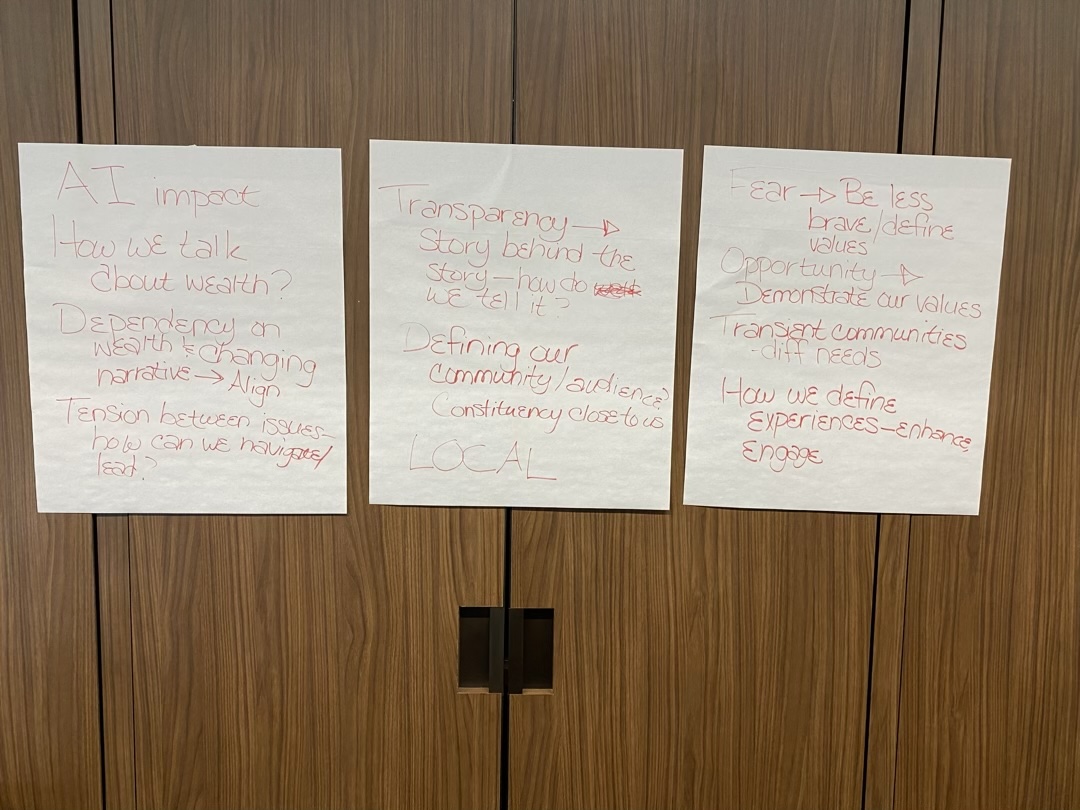 AI impact
How we talk
about wealth?
Dependency on
wealth & changing
narrative → Align
Tension between issues-
how can we navigate/
lead?
Transparency →
Story behind the
story - how do
we tell it?
Defining our
community/audience?
Constituency close to us
LOCAL
Fear → Be less
brave/define
values
Opportunity →
Demonstrate our values
Transient communities
-diff needs
How we define
experiences - enhance,
engage